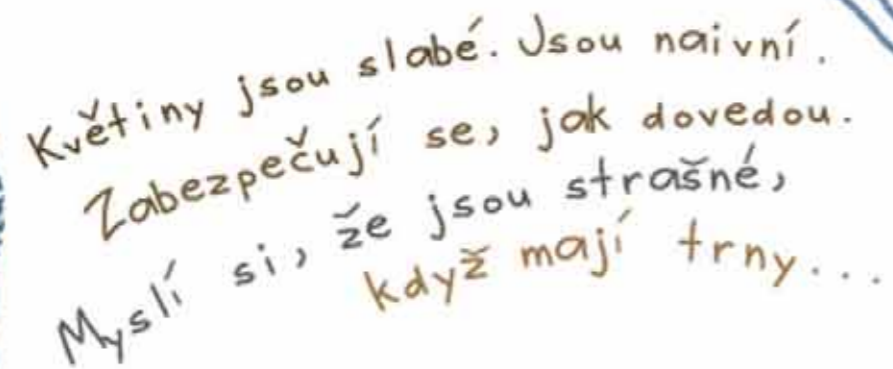 Květiny jsou slabé. Jsou naivní.
Zabezpečují se, jak dovedou.
Myslí si, že jsou strašné,
když mají trny...